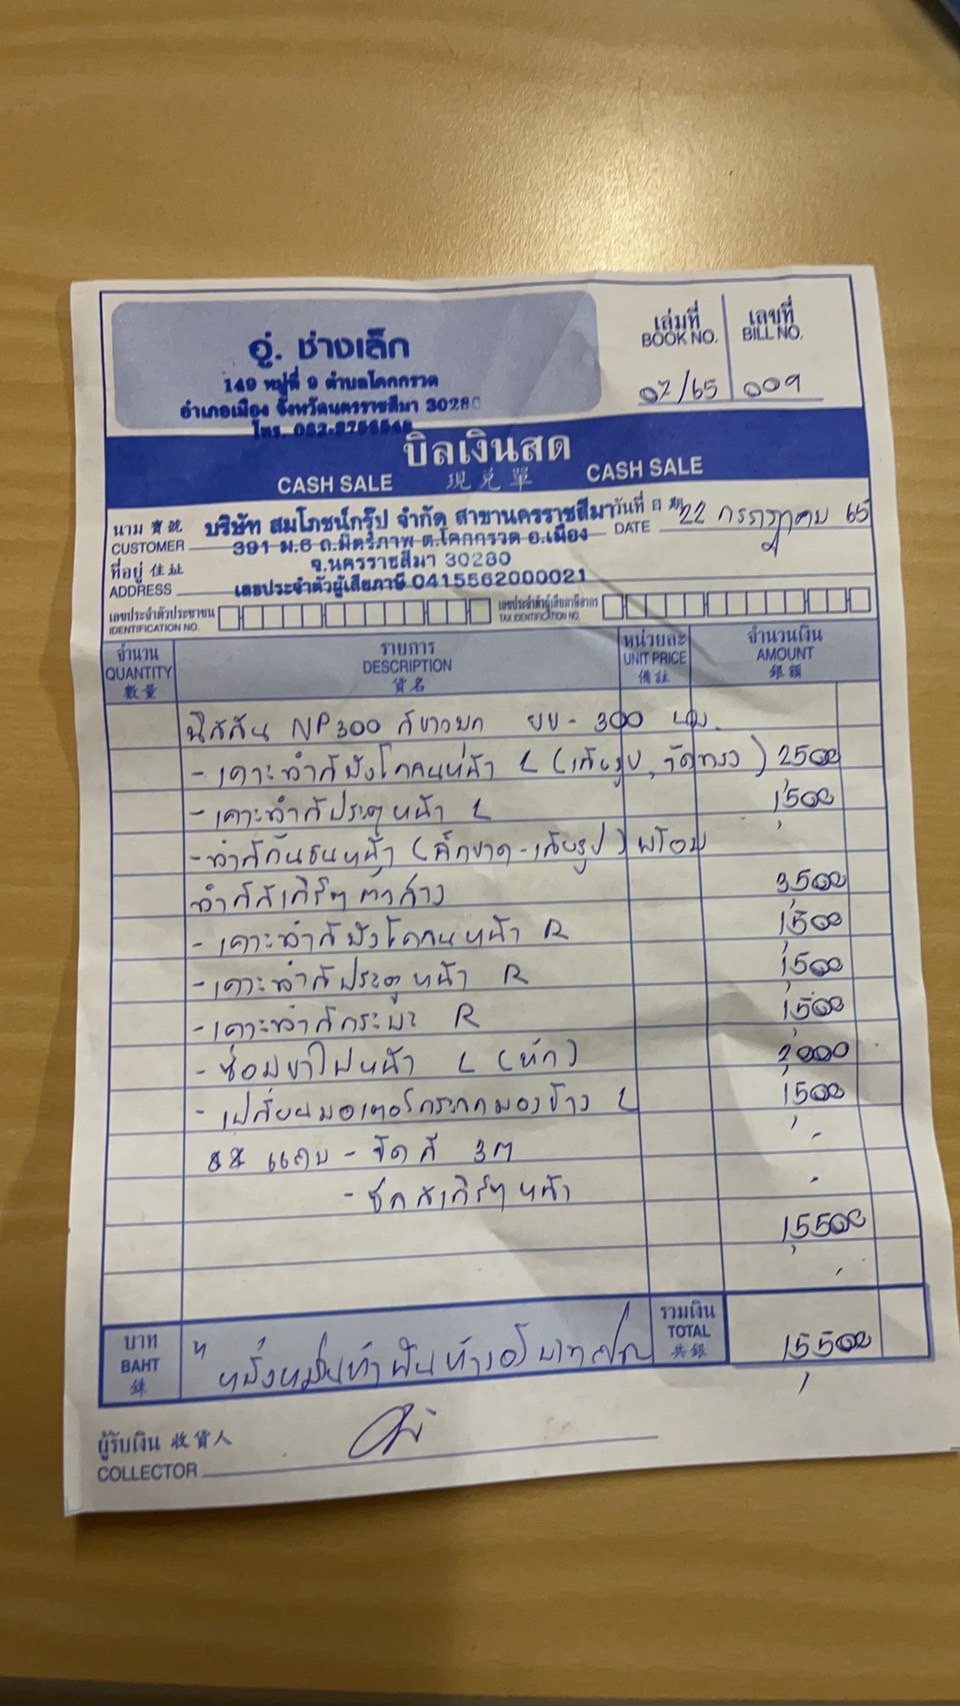 อู่. ช่างเล็ก
149 หมู่ที่ 9 ตำบลโคกกรวด
อำเภอเมือง จังหวัดนครราชสีมา 30280
โทร.
เล่มที่ เลขที่
BOOK NO. BILL NO.
07/65 009
บิลเงินสด
CASH SALE 現兌單 CASH SALE
นาม 寶號 บริษัท สมโภชน์กรุ๊ป จำกัด สาขานครราชสีมา วันที่ 22 กรกฎาคม 65
CUSTOMER 391 ม.6 ถ.มิตรภาพ ต.โคกกรวด อ.เมือง DATE
ที่อยู่ 住址 จ.นครราชสีมา 30280
ADDRESS เลขประจำตัวผู้เสียภาษี 0415562000021
เลขประจำตัวประชาชน เลขประจำตัวผู้เสียภาษีอากร
IDENTIFICATION NO. TAX IDENTIFICATION NO.
จำนวน รายการ หน่วยละ จำนวนเงิน
QUANTITY DESCRIPTION UNIT PRICE AMOUNT
數量 貨名 備註 銀額
นิสสัน NP300 สีขาวมุก ยบ-300 นม.
- เคาะทำสีบังโคลนหน้า L (เสียรูป, จัดทรง) 2,500
- เคาะทำสีประตูหน้า L 1,500
- ทำสีกันชนหน้า (ฉีกขาด-เสียรูป) พร้อม
ทำสีสเกิร์ตตัวล่าง 3,500
- เคาะทำสีบังโคลนหน้า R 1,500
- เคาะทำสีประตูหน้า R 1,500
- เคาะทำสีกระบะ R 1,500
- ซ่อมขาไฟหน้า L (หัก) 2,000
- เปลี่ยนมอเตอร์กระจกมองข้าง L 1,500
แถม - ขัดสี 3M -
- ชุดสเกิร์ตหน้า -
15,500
บาท รวมเงิน
BAHT " หนึ่งหมื่นห้าพันห้าร้อยบาทถ้วน TOTAL 15,500
銖 共銀
ผู้รับเงิน 收貨人
COLLECTOR